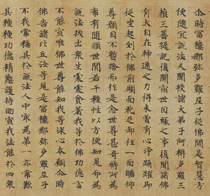 爾時富樓那彌多羅尼子從佛聞是智慧方
便隨宜說法又聞授諸大弟子阿耨多羅三
藐三菩提記復聞宿世因緣之事復聞諸佛
有大自在神通之力得未曾有心淨踊躍即
從座起到於佛前頭面禮足却住一面瞻仰
尊顏目不暫捨而作是念世尊甚奇特所為希
有隨順世間若干種性以方便知見而為
說法拔出眾生處處貪著我等於佛功德言
不能宣唯佛世尊能知我等深心本願爾時
佛告諸比丘汝等見是富樓那彌多羅尼子
不我常稱其於說法人中最為第一亦常歎
其種種功德精勤護持助宣我法能於四眾